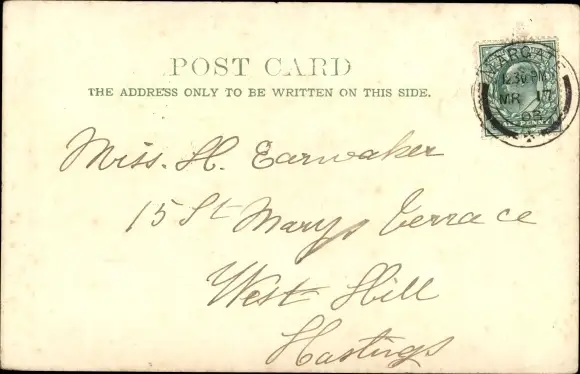 POST CARD
THE ADDRESS ONLY TO BE WRITTEN ON THIS SIDE.
MARGATE
.30 PM
MR 17
03
PENNY
Miss. H. Earwaker
15 St Marys Terrace
West Hill
Hastings